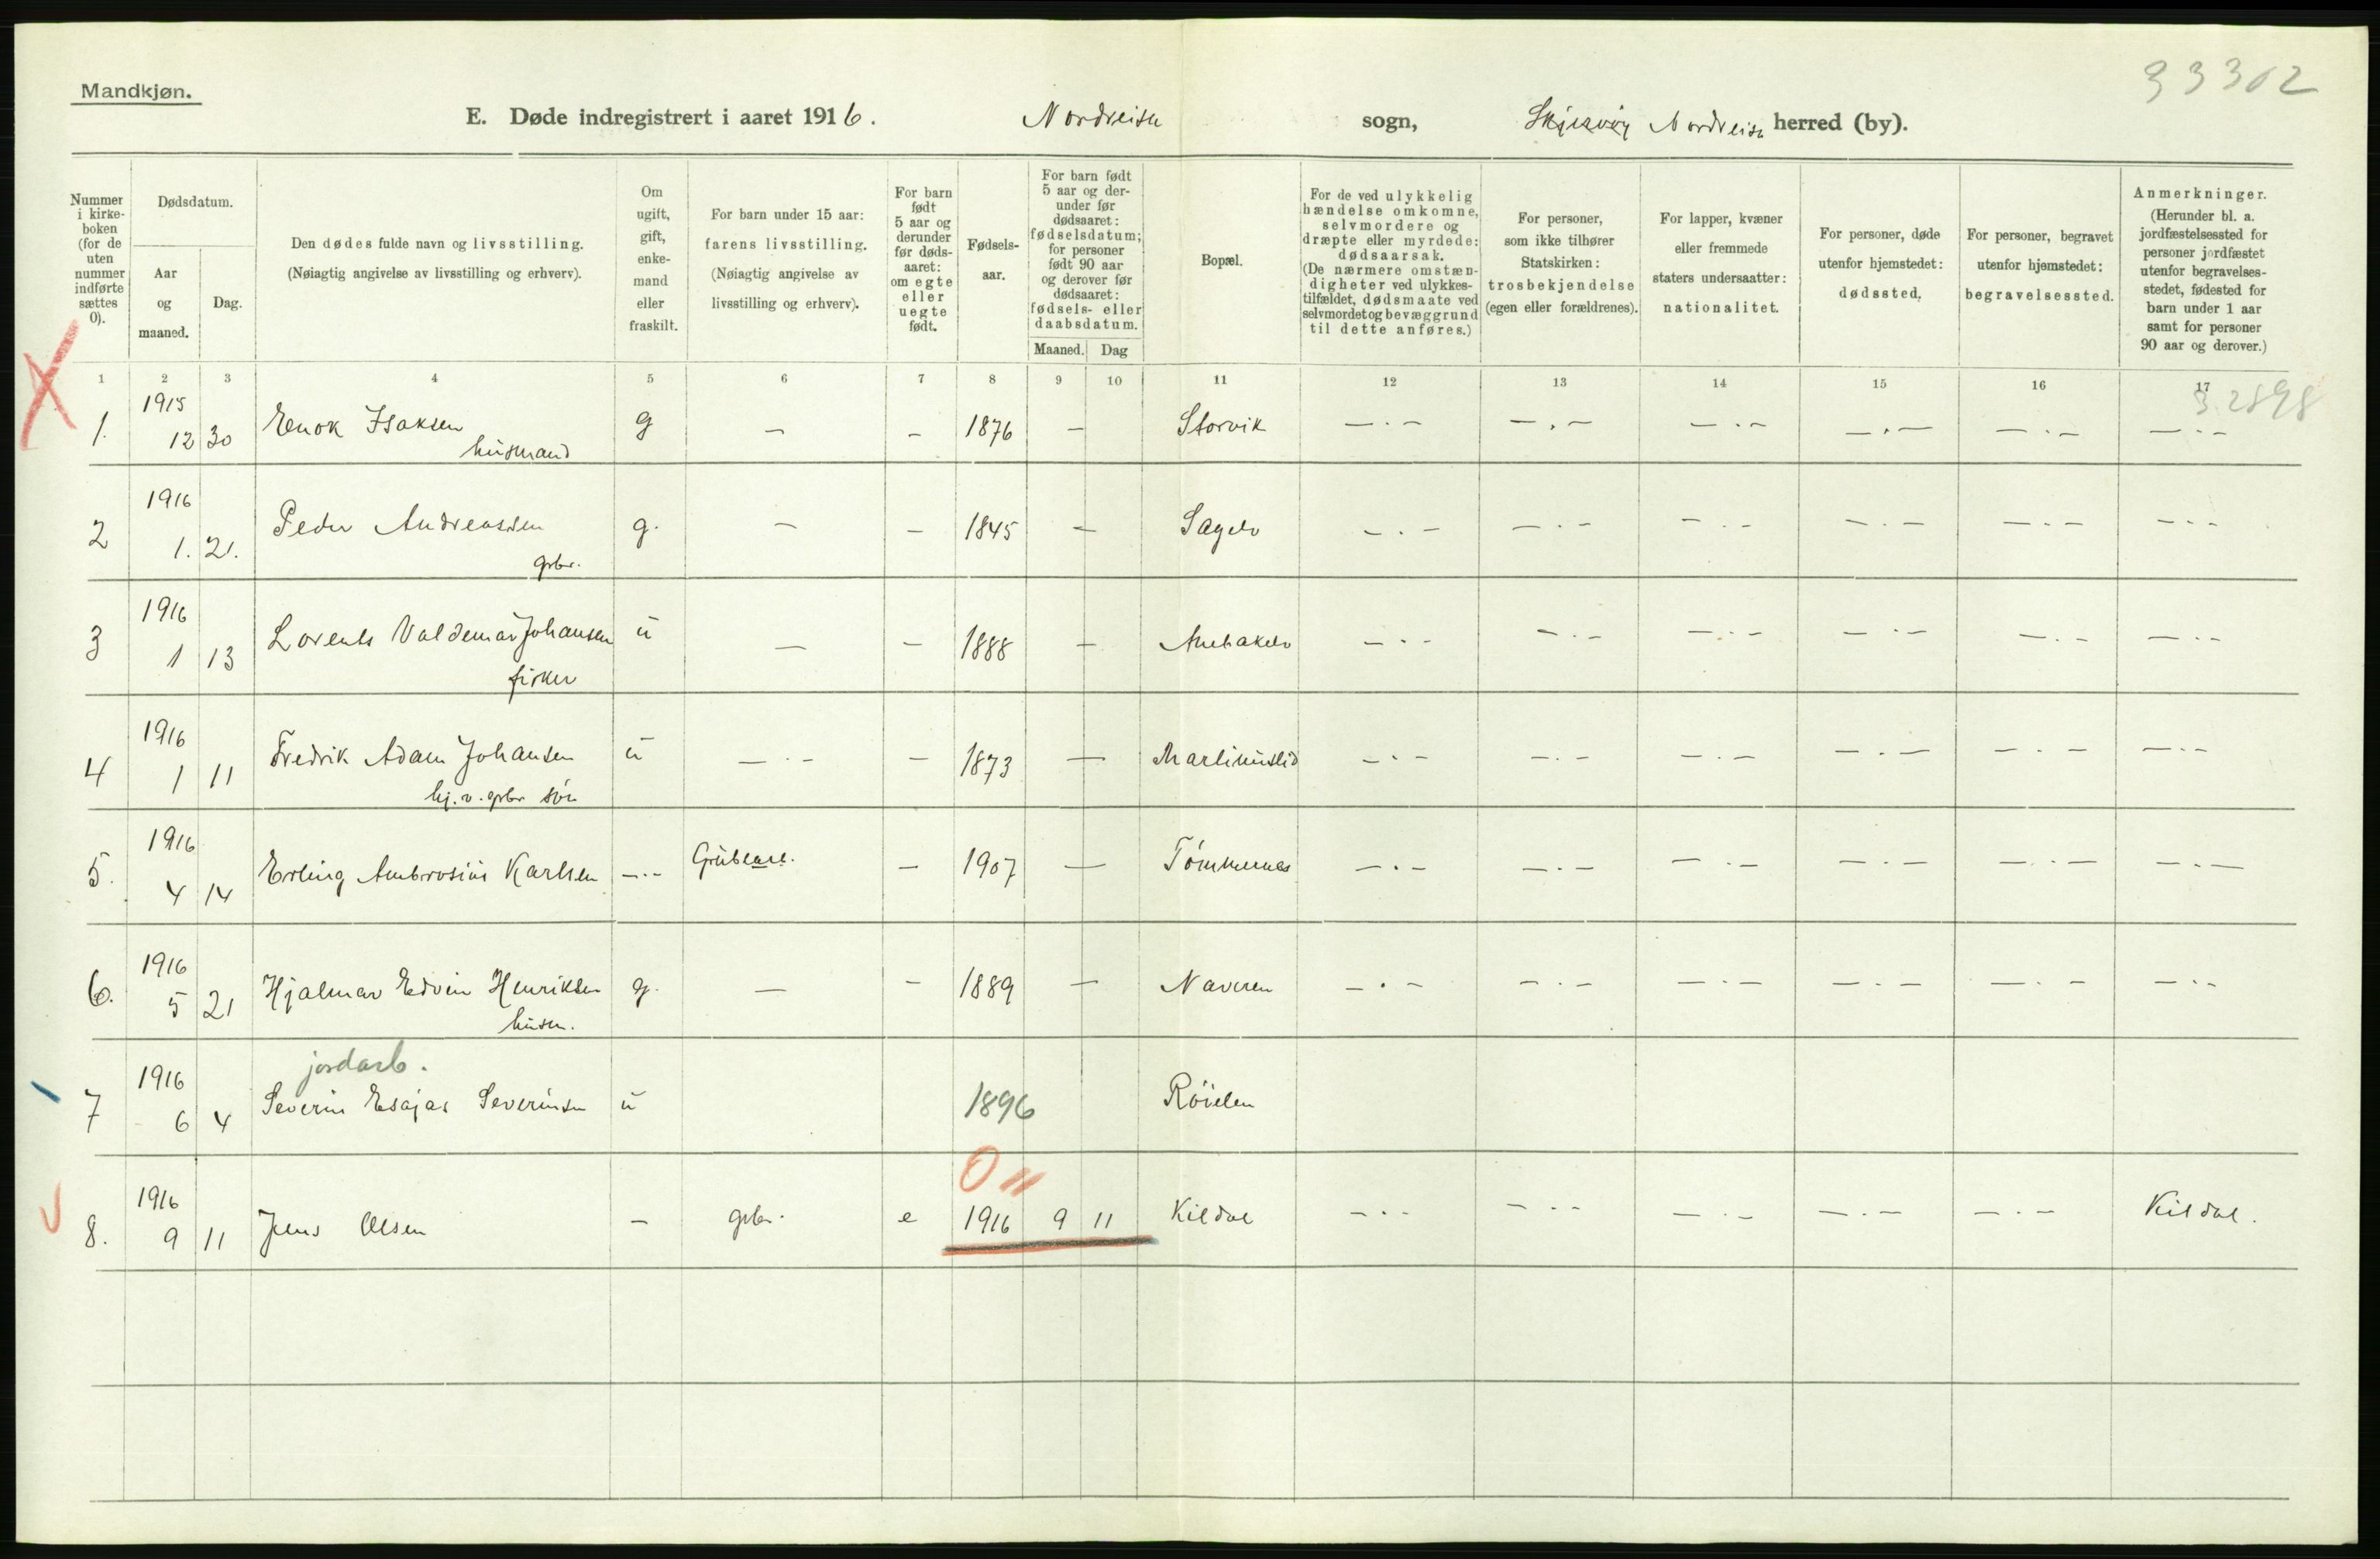 33302
Mandkjøn.
E. Døde indregistrert i aaret 1916. Nordreisa sogn, Skjervøy Nordreisa herred (by).
Nummer i kirke- boken (for de uten nummer indførte sættes 0).
Dødsdatum.
Aar og maaned.
Dag.
Den dødes fulde navn og livsstilling.
(Nøiagtig angivelse av livsstilling og erhverv).
Om ugift, gift, enke- mand eller fraskilt.
For barn under 15 aar: farens livsstilling. (Nøiagtig angivelse av livsstilling og erhverv).
For barn født 5 aar og derunder før døds- aaret: om egte eller uegte født.
Fødsels- aar.
For barn født 5 aar og der- under før dødsaaret: fødselsdatum; for personer født 90 aar og derover før dødsaaret: fødsels- eller daabsdatum.
Maaned. Dag
Bopæl.
For de ved ulykkelig hændelse omkomne, selvmordere og dræpte eller myrdede: dødsaarsak. (De nærmere omstæn- digheter ved ulykkes- tilfældet, dødsmaate ved selvmordet og bevæggrund til dette anføres.)
For personer, som ikke tilhører Statskirken: trosbekjendelse (egen eller forældrenes).
For lapper, kvæner eller fremmede staters undersaatter: nationalitet.
For personer, døde utenfor hjemstedet: dødssted.
For personer, begravet utenfor hjemstedet: begravelsessted.
Anmerkninger. (Herunder bl. a. jordfæstelsessted for personer jordfæstet utenfor begravelses- stedet, fødested for barn under 1 aar samt for personer 90 aar og derover.)
1 2 3 4 5 6 7 8 9 10 11 12 13 14 15 16 17
32898
1915
1. 12 30 Enok Isaksen g — — 1876 — Storvik —.— —.— —.— —.— —.— —.—
husmand
1916
2 1. 21. Peder Andreassen g. — — 1845 — Sagelv —.— —.— —.— —.— —.— —.—
grbr.
1916
3 1 13 Lorents Valdemar Johansen u — — 1888 — —.— —.— —.— —.— —.— —.—
fisker
1916
4 1 11 Fredrik Adam Johansen u —.— — 1873 — Martinuslid —.— —.— —.— —.— —.— —.—
hj.v. grbr søn
1916
5. 4 14 Erling Ambrosius Karlsen —.— Grubearb. — 1907 — Tømmernes —.— —.— —.— —.— —.— —.—
1916
6. 5 21 Hjalmar Edvin Henriksen g. — — 1889 — Naveren —.— —.— —.— —.— —.— —.—
husm.
jordarb.
1916
7 6 4 Severin Esajas Severinsen u 1896 Røielen
0 "
1916
8. 9 11 Jens Olsen — grbr. e 1916 9 11 Kildal —.— —.— —.— —.— —.— Kildal.